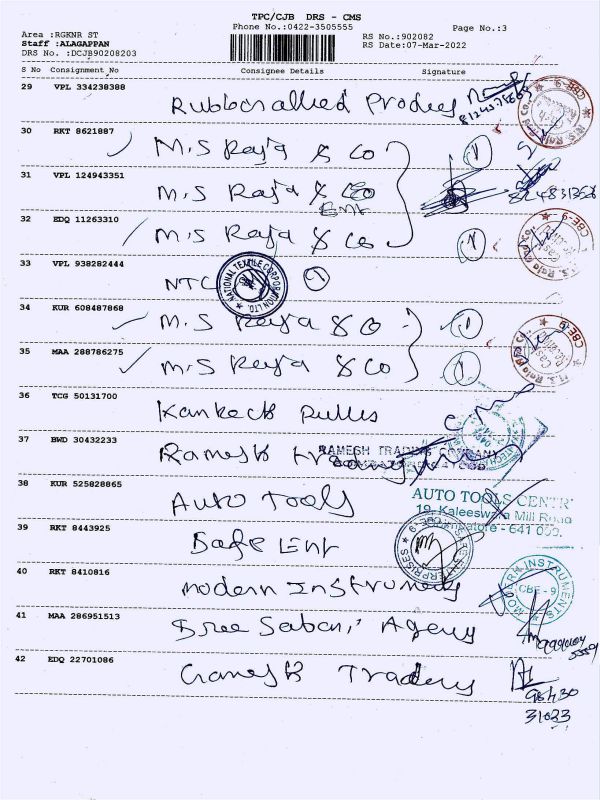 TPC/CJB DRS - CMS
Phone No.:0422-3505555
Page No.:3
Area :RGKNR ST
Staff :ALAGAPPAN
DRS No. :DCJB90208203
RS No.:902082
RS Date:07-Mar-2022
S No Consignment No Consignee Details Signature
29 VPL 334238388
30 RKT 8621887
M.S Raja & Co
31 VPL 124943351
M.S Raja &
32 EDQ 11263310
M.S Raja & Co
33 VPL 938282444
NTC
NATIONAL TEXTILE CORPORATION LTD.
34 KUR 608487868
M.S Raja & Co
35 MAA 288786275
M.S Raja & Co
36 TCG 50131700
37 BWD 30432233
Ramesh Trading
RAMESH TRADING COMPANY
38 KUR 525828865
Auto Tools
AUTO TOOLS CENTR
19, Kaleeswara Mill Road
Coimbatore - 641 009.
39 RKT 8443925
Safe Ent
40 RKT 8410816
Modern Instruments
MODERN INSTRUMENTS
CBE - 9
41 MAA 286951513
Sree Sabari Agency
42 EDQ 22701086
Ganesh Traders
98430
31023